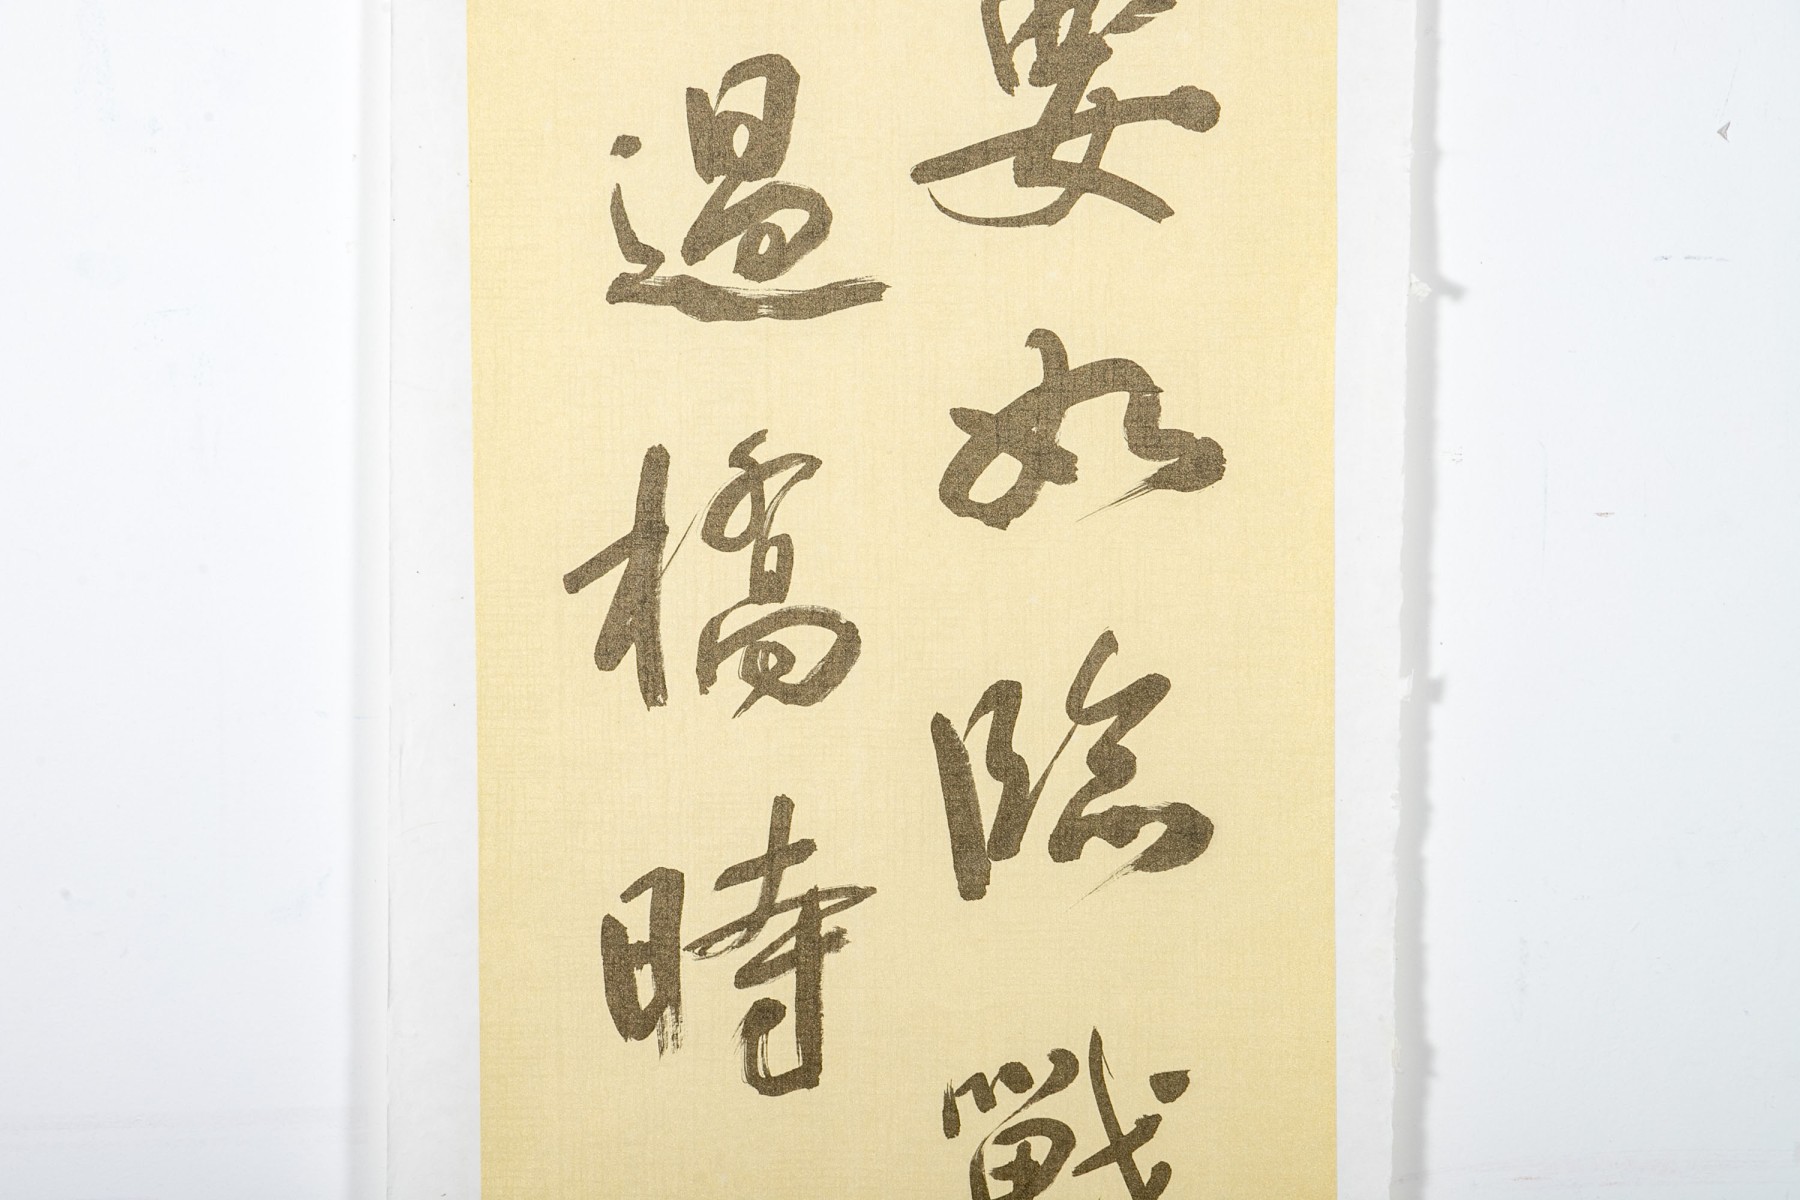 要如臨戰
過橋時